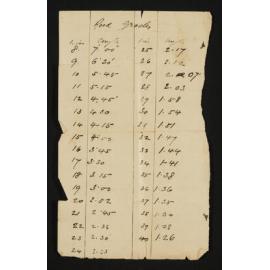 8 7·00 25 2·17
9 6·20 26 2·12
10 5·45 27 2·07
11 5·15 28 2·03
12 4·45 29 1·58
13 4·30 30 1·54
14 4·15 31 1·51
15 32 1·47
16 3·45 33 1·44
17 3·30 34 1·41
18 3·15 35 1·38
19 3·02 36 1·36
20 2·52 37
21 2·45 38
22 39 1·28
23 2·30 40 1·26
24